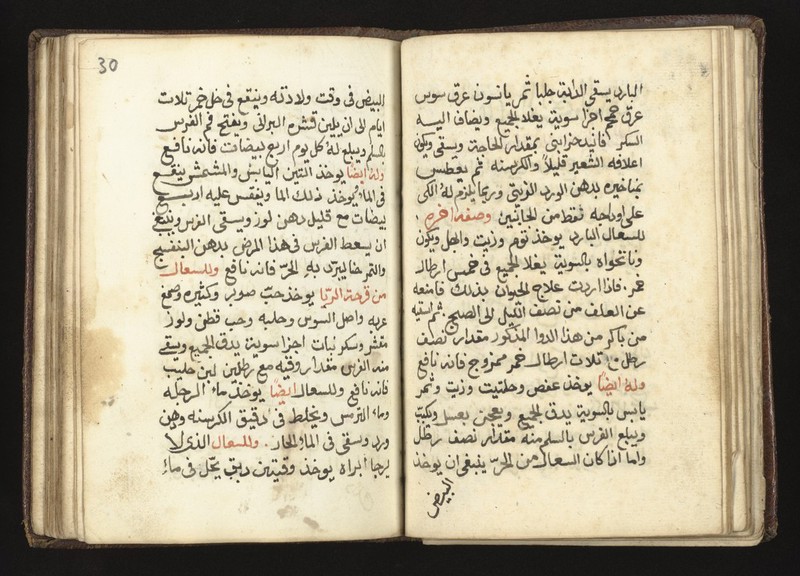 البارد يسقى الدابة حلبا ثمر يانسون عرق سوس
عرق اجزا سوية يغلا الجميع ويضاف اليه
السكر فانيد خزايني بمقدار الحاجة ويسقى ويكون
اعلافه الشعير قليلا والكرسنه ثم يعطس
بمناخيره بدهن الورد الزيتي وربما يلزم له الكى
على اوداجه نقط من الجانبين وصفه اخره
للسعال البارد يوخذ ثوم وزيت وابهل ويكون
ونانخواه بالسوية يغلا الجميع في خمس ارطال
خمر فاذا اردت علاج الحيوان بذلك فامنعه
عن العلف من نصف الليل الى الصبح ثم اسقيه
من باكر من هذا الدوا المذكور مقدار نصف
رطل ثلاث ارطال خمر ممزوج فانه نافع
وله ايضا يوخذ عفص وحلتيت وزيت وتمر
يابس بالسوية يدق الجميع ويعجن بعسل
ويبلع الفرس بالسلم منه مقدار نصف رطل
واما اذا كان السعال من الحر ينبغى ان يوخذ
البيض
30
البيض في وقت ولادته وينقع في خل خمر ثلاث
ايام الى ان يلين قشره البرانى ويفتح فم الفرس
بالسلم ويبلع له كل يوم اربع بيضات فانه نافع
وله ايضا يوخذ التين اليابس والمشمش ينقع
في الماء يوخذ ذلك الما ويفقس عليه اربع
بيضات مع قليل دهن لوز ويسقى الفرس وينبغى
ان يسعط الفرس في هذا المرض بدهن البنفسج
والتمر حنا ليبرد به الحر فانه نافع وللسعال
من قرحة الريا يوخذ حب صنوبر وكثيره وصمغ
عربى واصل السوس وحلبه وحب قطن ولوز
مقشر وسكر نبات اجزا سوية يدق الجميع ويسقى
منه الفرس مقدار وقيه مع رطلين لبن حليب
فانه نافع وللسعال ايضا يوخذ ماء الرجله
وماء الترمس ويخلط في دقيق الكرسنه ودهن
ورد ويسقى في الماء الحار وللسعال الذى لا
يرجا ابراه يوخذ وقيتين دبق يحل في ماء